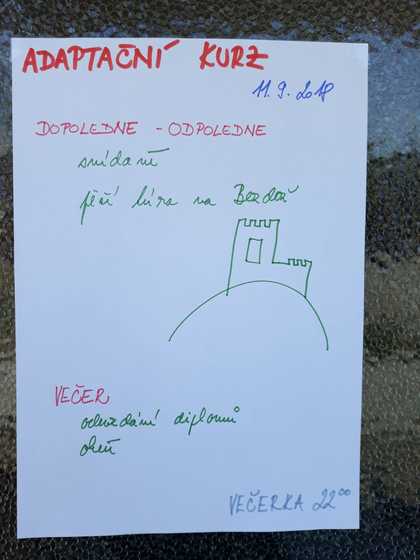 ADAPTAČNÍ KURZ
11.9.2018
DOPOLEDNE - ODPOLEDNE
snídaně
pěší túra na Bezděz
VEČER
odevzdání diplomů
oheň
VEČERKA 22⁰⁰